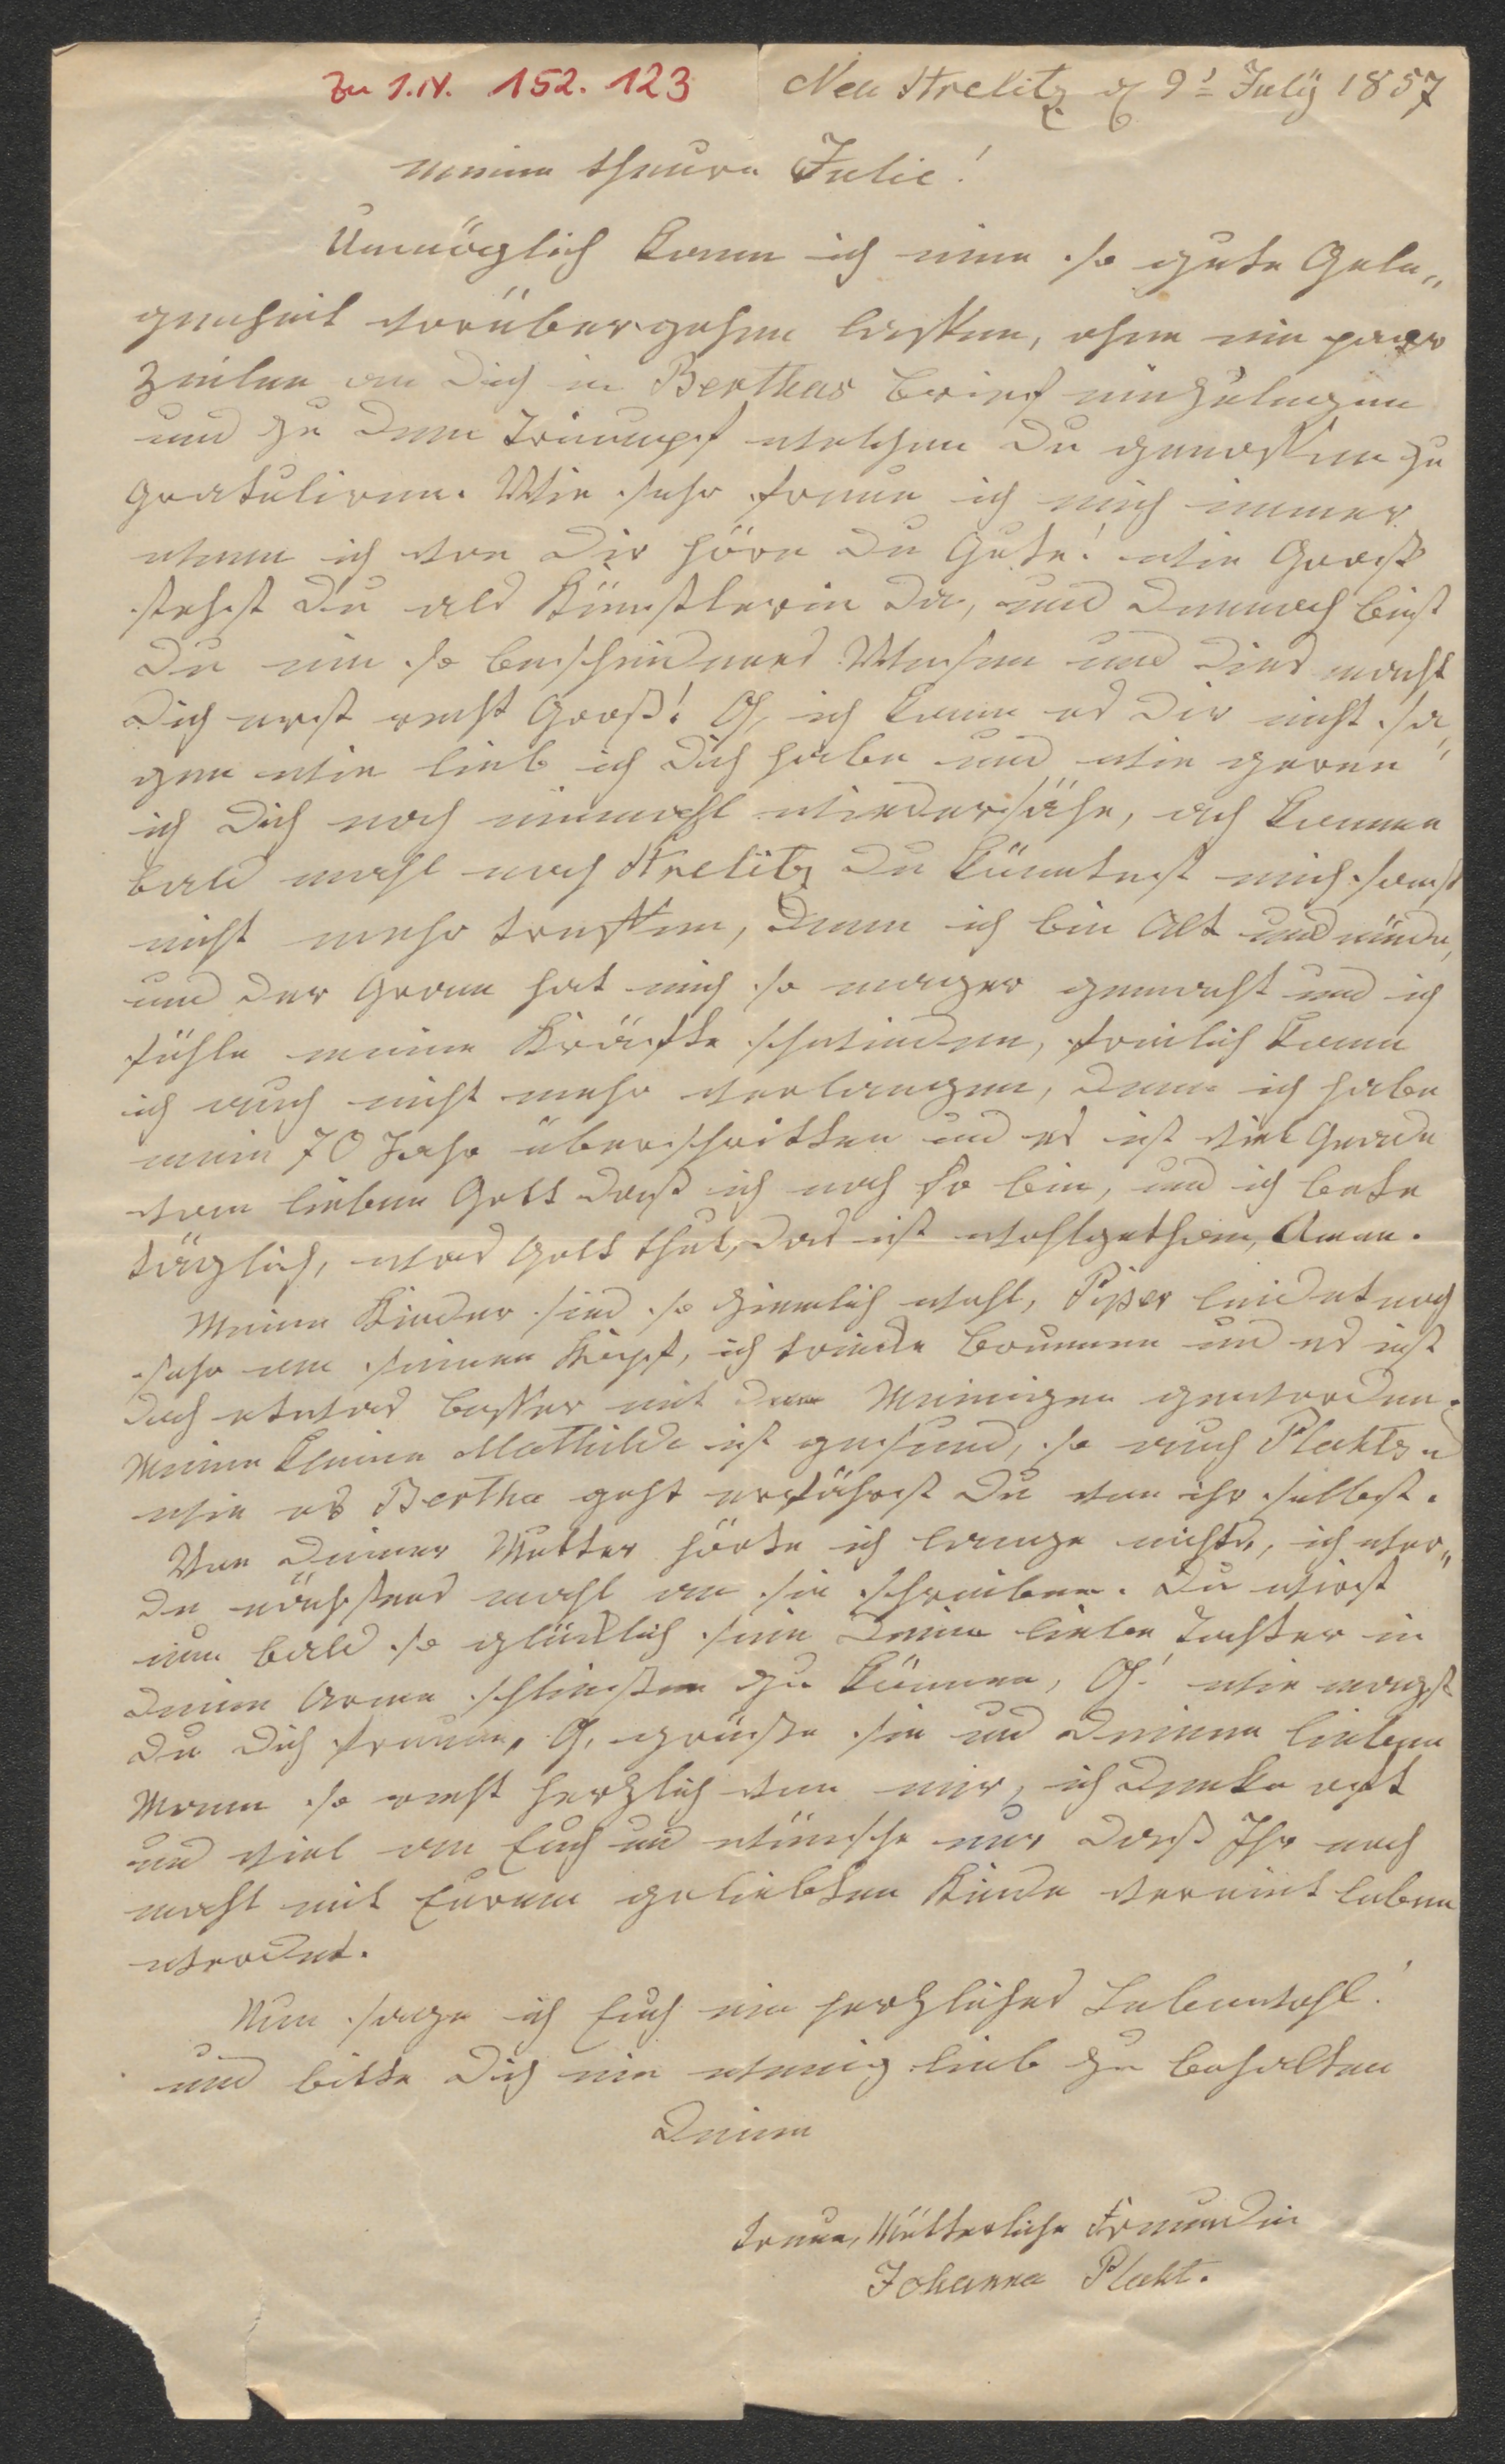 Zu I.N. 152.123
Neu Strelitz d 9t July 1857
meine theure Julie!
Unmöglich kann ich eine so gute Gele„
genheit vorübergehen lassen, ohne ein paar
Zeilen an Dich in Berthas Brief einzulegen
und zu dem Triumpf welchen Du genossen zu
gratuliren. Wie sehr freue ich mich immer
wenn ich von Dir höre Du Gute! wie Groß
stehst Du als Künstlerin da, und dennoch bist
Du ein so bescheidenes Wesen und dies macht
Dich erst recht Groß! O, ich kann es Dir nicht sa„
gen wie lieb ich Dich habe und wie geren
ich Dich noch einmahl wiedersähe, ach komme
bald mahl nach Strelitz Du könntest mich sonst
nicht mehr treffen, denn ich bin Alt und müde,
und der Gram hat mich so mager gemacht und ich
fühle meine Kräfte schwinden, freilich kann
ich auch nicht mehr verlangen, denn ich habe
mein 70 Jahr überschritten und es ist viel Gnade
vom lieben Gott daß ich noch so bin, und ich bete
täglich, was Gott thut, das ist wohlgethan, Amen.
Meine Kinder sind so ziemlich wohl, leidet noch
sehr an seinen Kopf, ich trincke Brunnen und es ist
doch etwas besser mit dem Meinigen geworden.
Meine kleine Mathilde ist gesund, so auch Plahts u
wie es Bertha geht erfährst Du von ihr selbst.
Von Deiner Mutter hörte ich lange nichts, ich wer„
de nächstens mahl an sie schreiben. Du wirst
nun bald so glücklich sein Deine liebe Tochter in
Deine Arme schließen zu können, O! wie magst
Du Dich freuen, O, grüße sie und Deinen lieben
Mann so recht herzlich von mir, ich denke oft
und viel an Euch und wünsche nur daß Ihr noch
mahl mit Eurem geliebten Kinde vereint leben
werdet.
Nun sage ich Euch ein herzliches Lebewohl!
und bitte Dich ein wenig lieb zu behalten
Deine
treue, Mütterliche Freundin
Johanna Plaht.